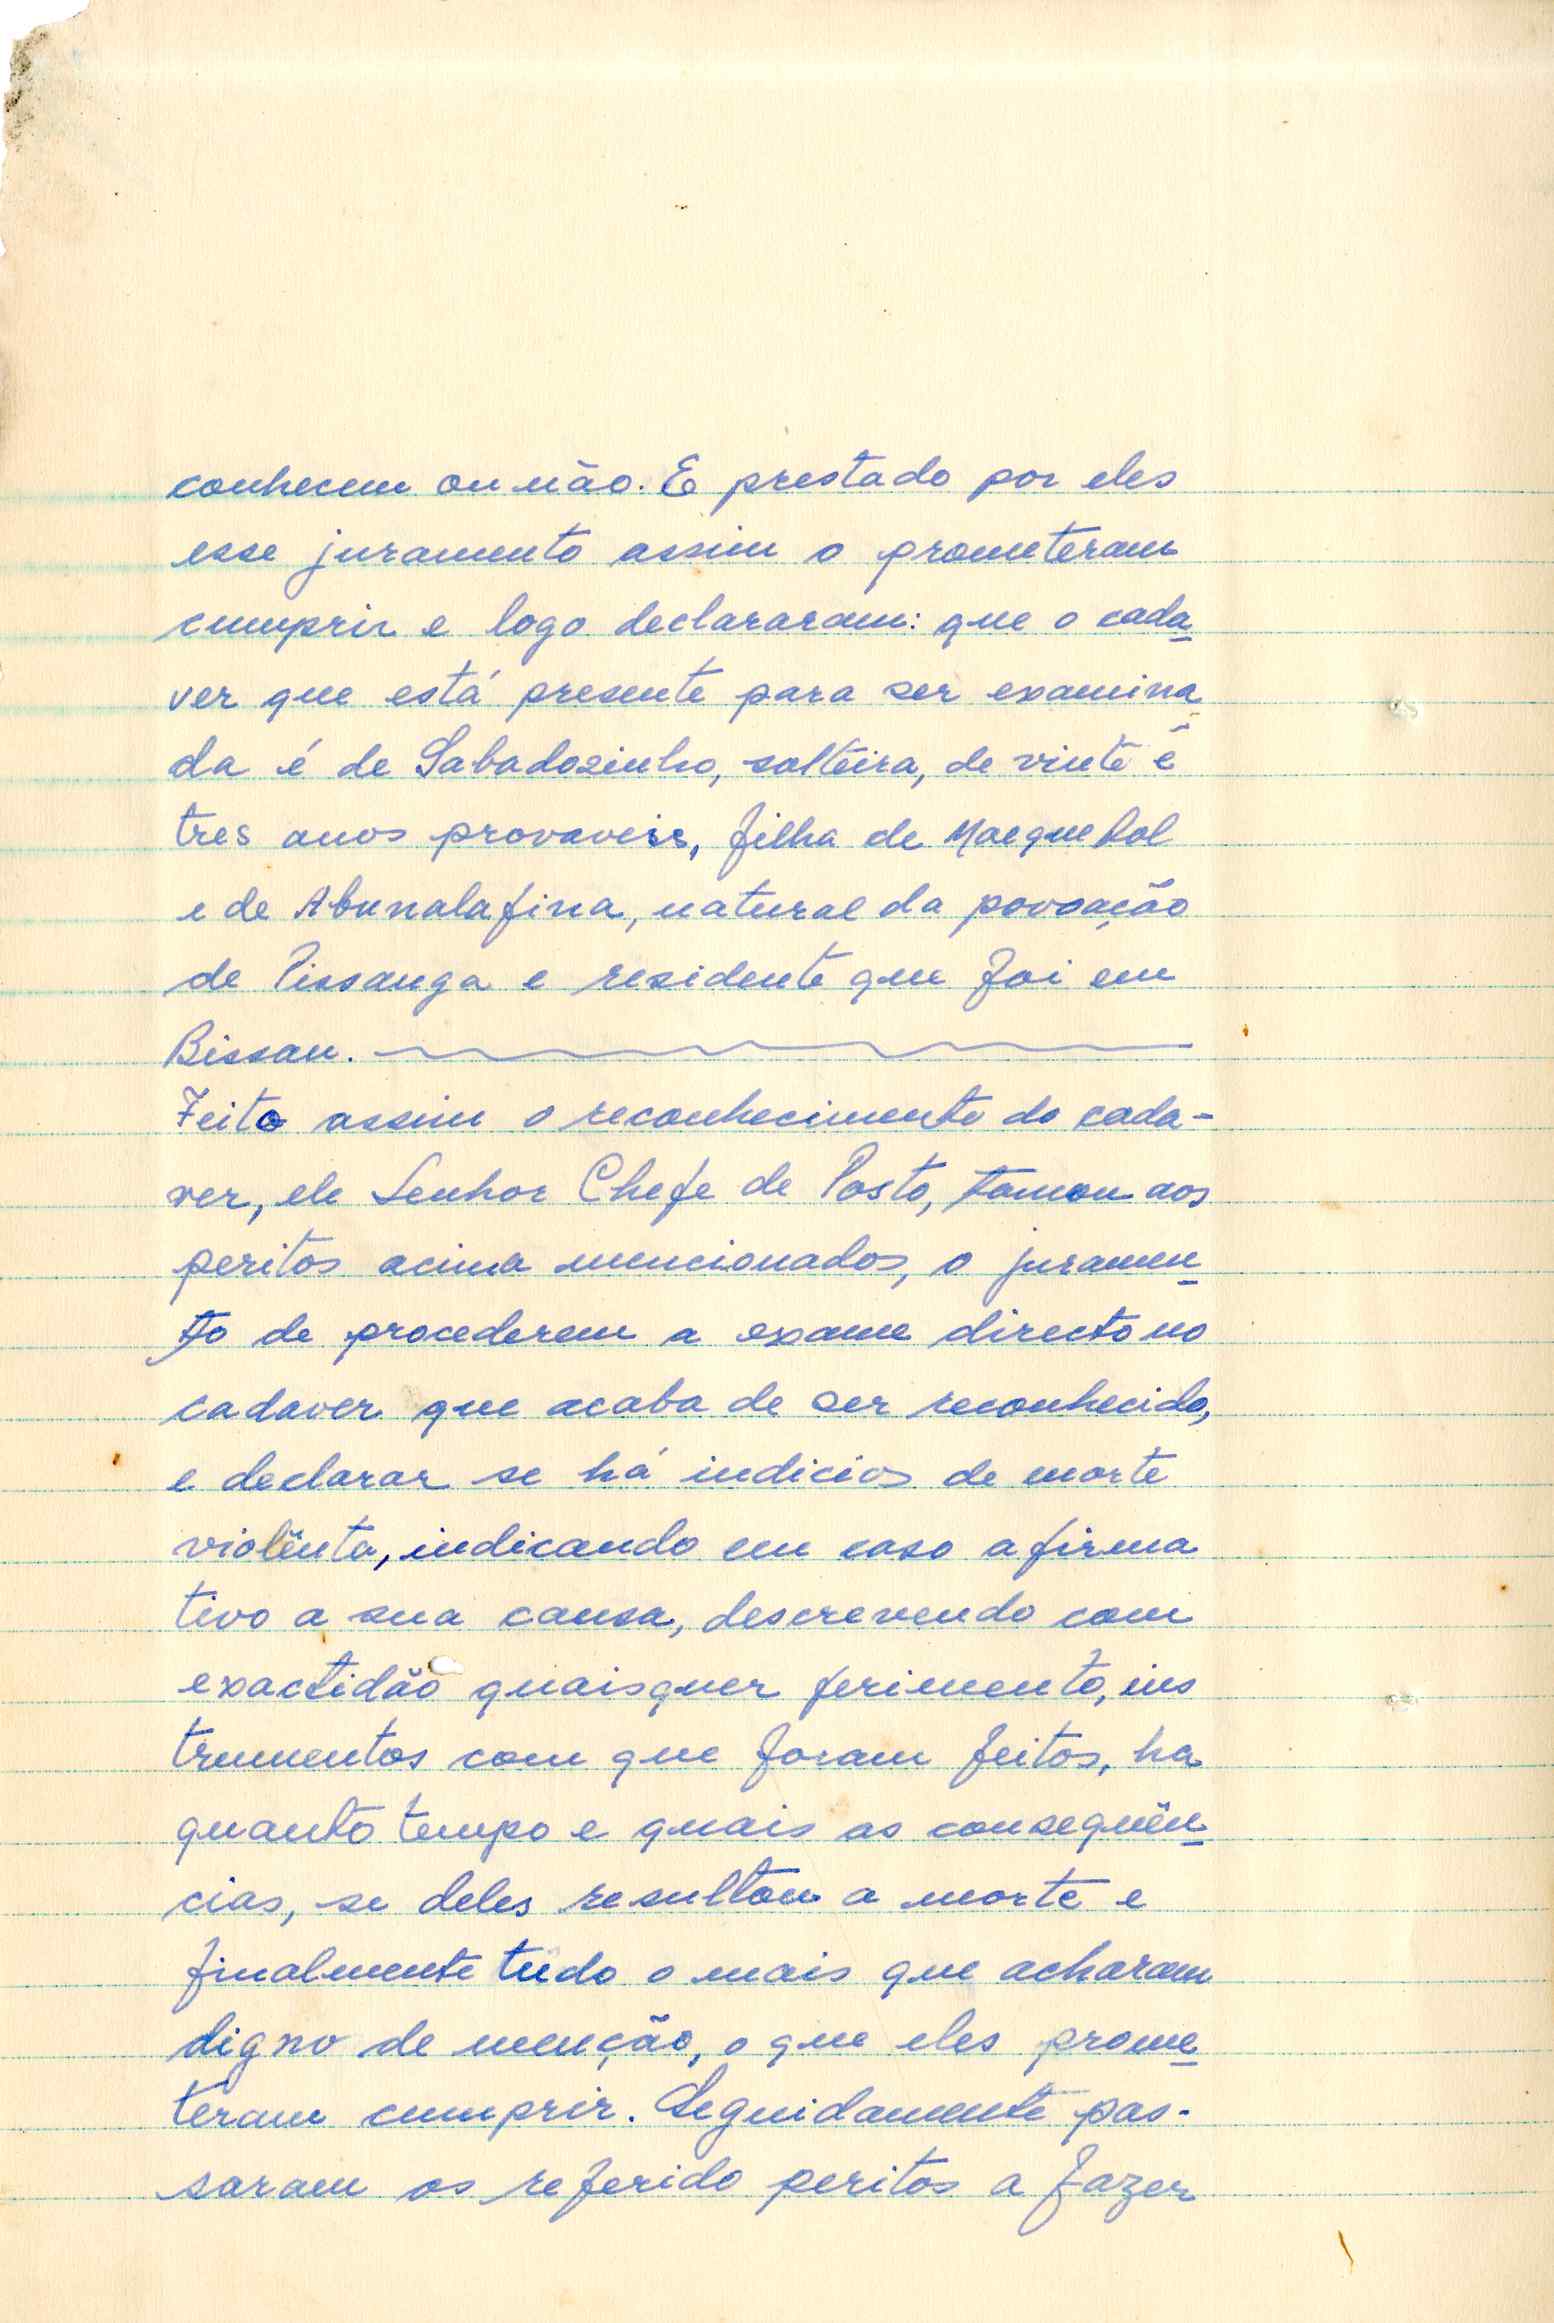 conhecem ou não. E prestado por eles
esse juramento assim o prometeram
cumprir e logo declararam: que o cada
ver que está presente para ser examina
da é de Sabadozinho, solteira, de vinte e
tres anos provaveis, filha de Maequebol
e de Abunalafina, natural da povoação
de Pissanga e residente que foi em
Bissau.
Feito assim o reconhecimento do cada-
ver, ele Senhor Chefe de Posto, tomou aos
peritos acima mencionados, o juramen
to de procederem a exame directo no
cadaver que acaba de ser reconhecido,
e declarar se há indicios de morte
violênta, indicando em caso afirma
tivo a sua causa, descrevendo com
exactidão quaisquer ferimento, ins
trumentos com que foram feitos, ha
quanto tempo e quais as consequên
cias, se deles resultou a morte e
finalmente tudo o mais que acharam
digno de menção, o que eles prome
teram cumprir. Seguidamente pas-
saram os referido peritos a fazer